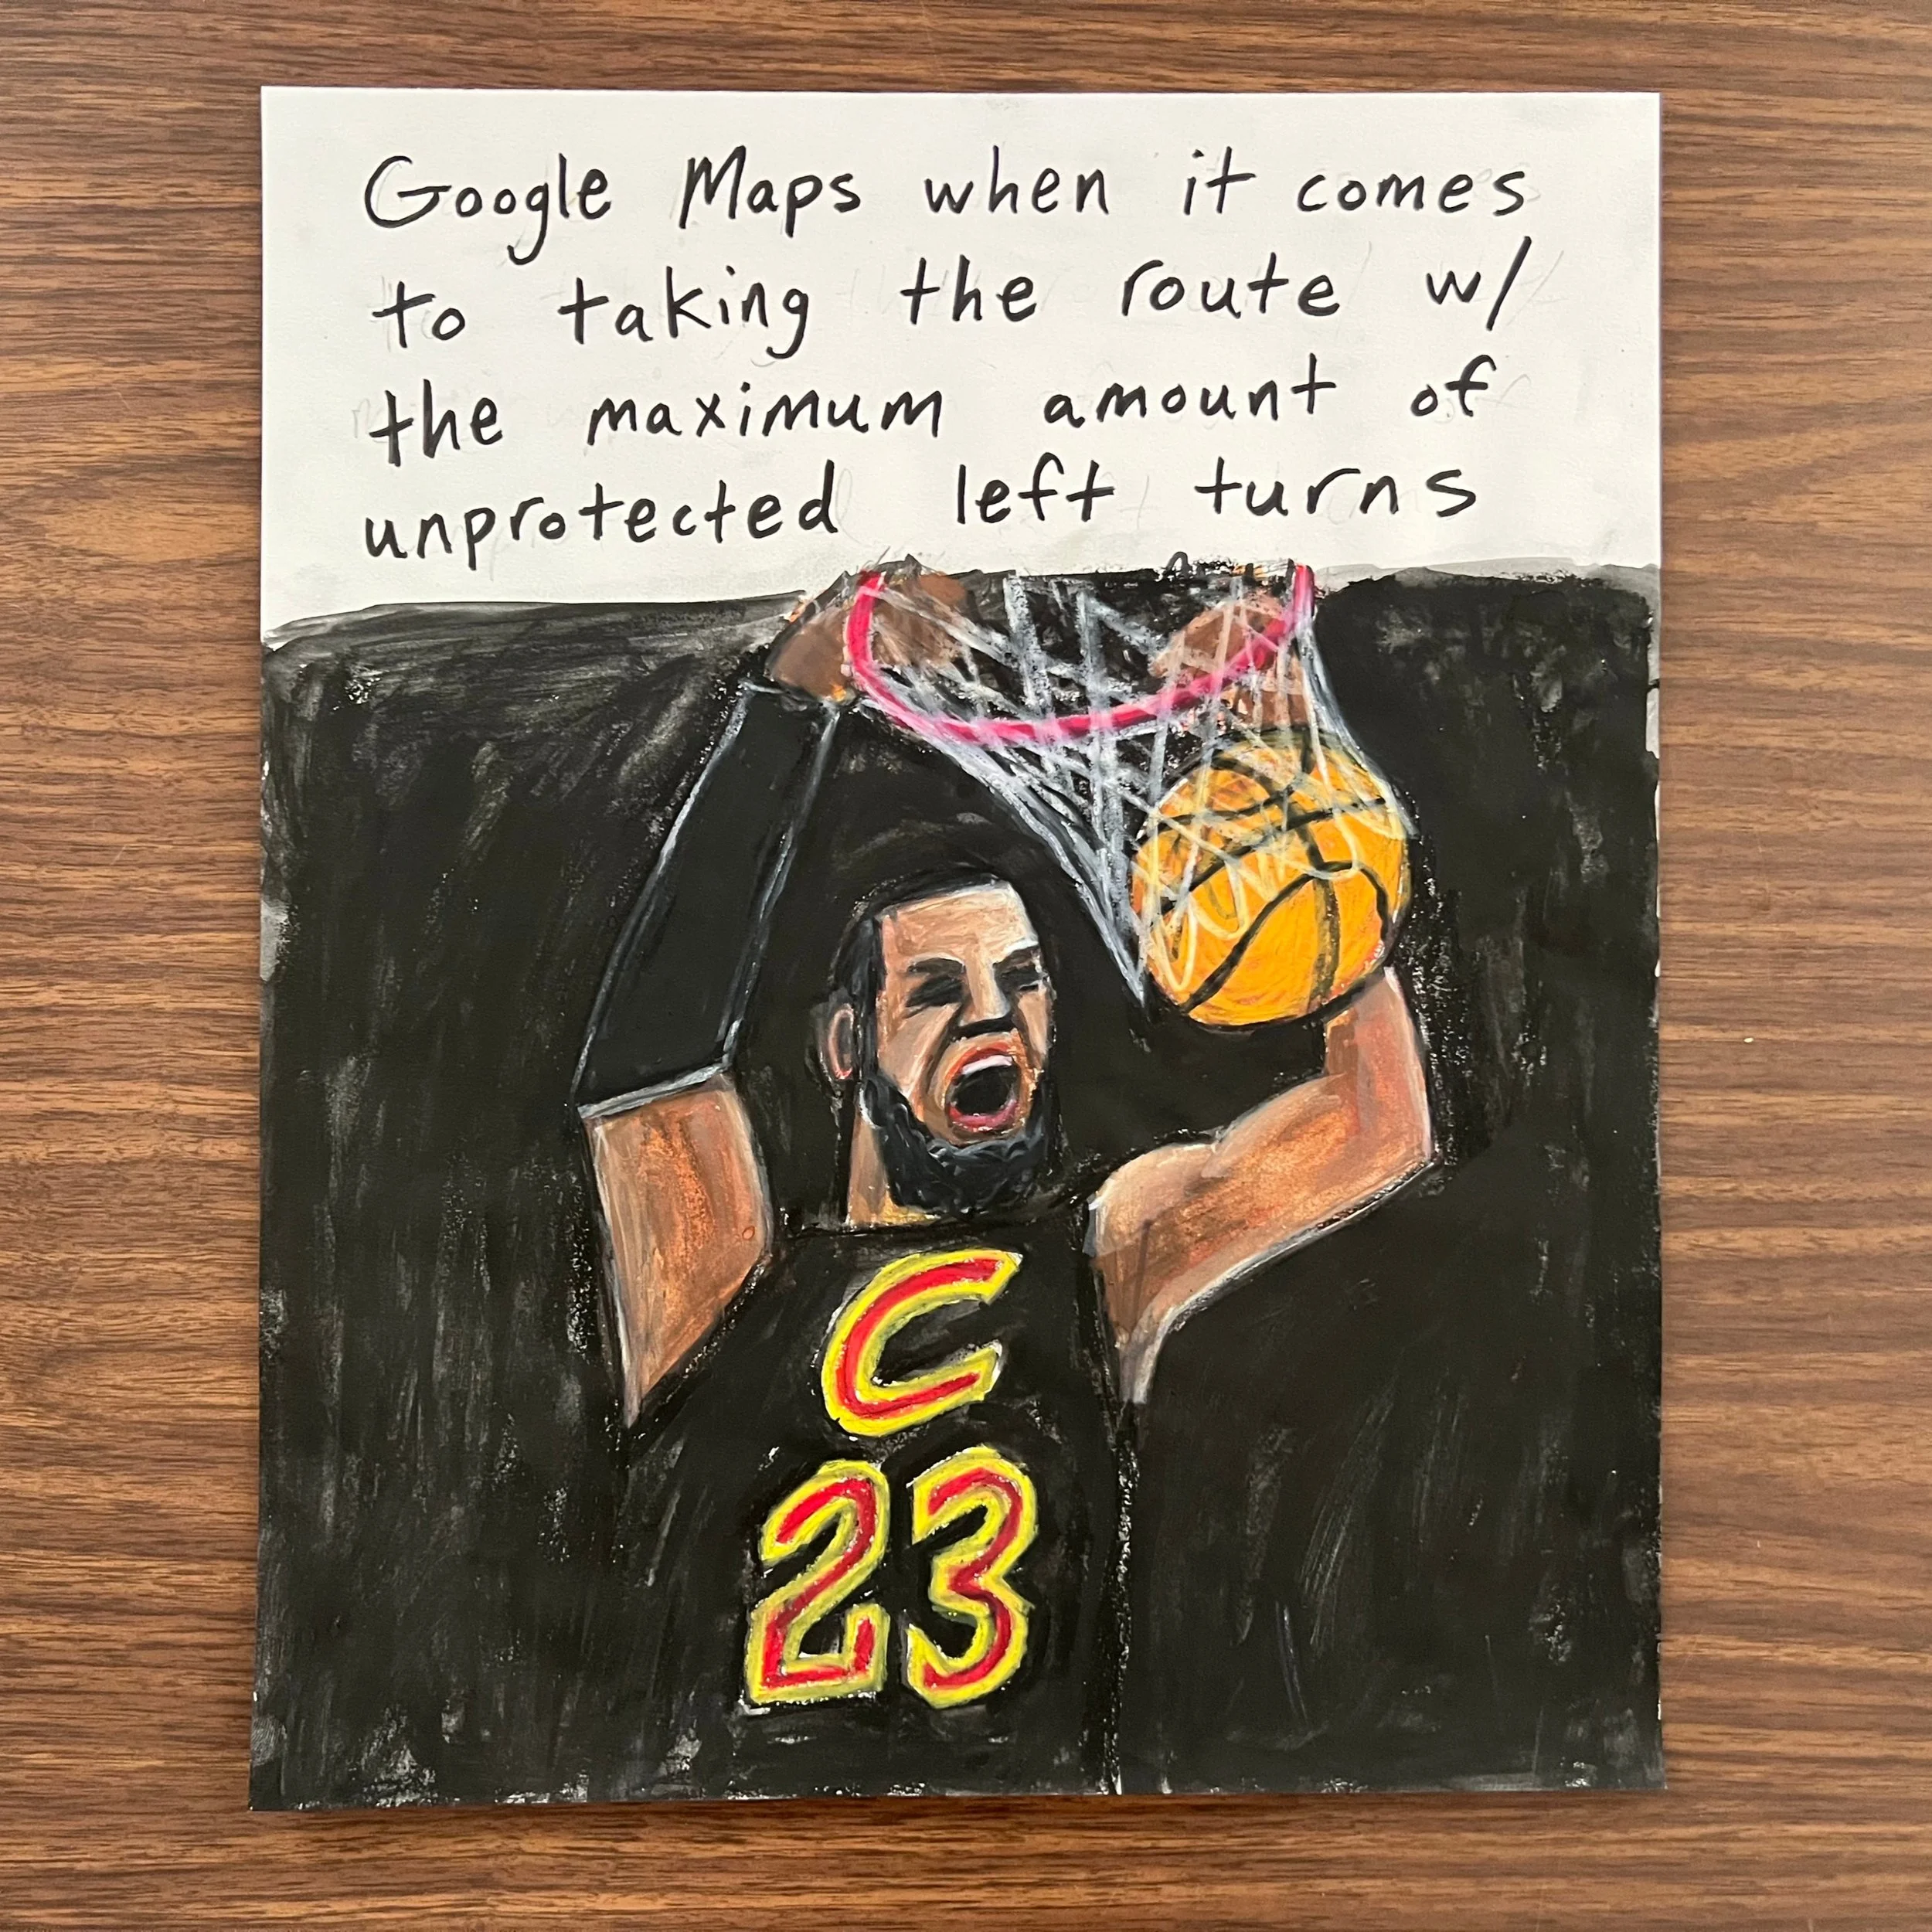 Google Maps when it comes
to taking the route w/
the maximum amount of
unprotected left turns
C
23